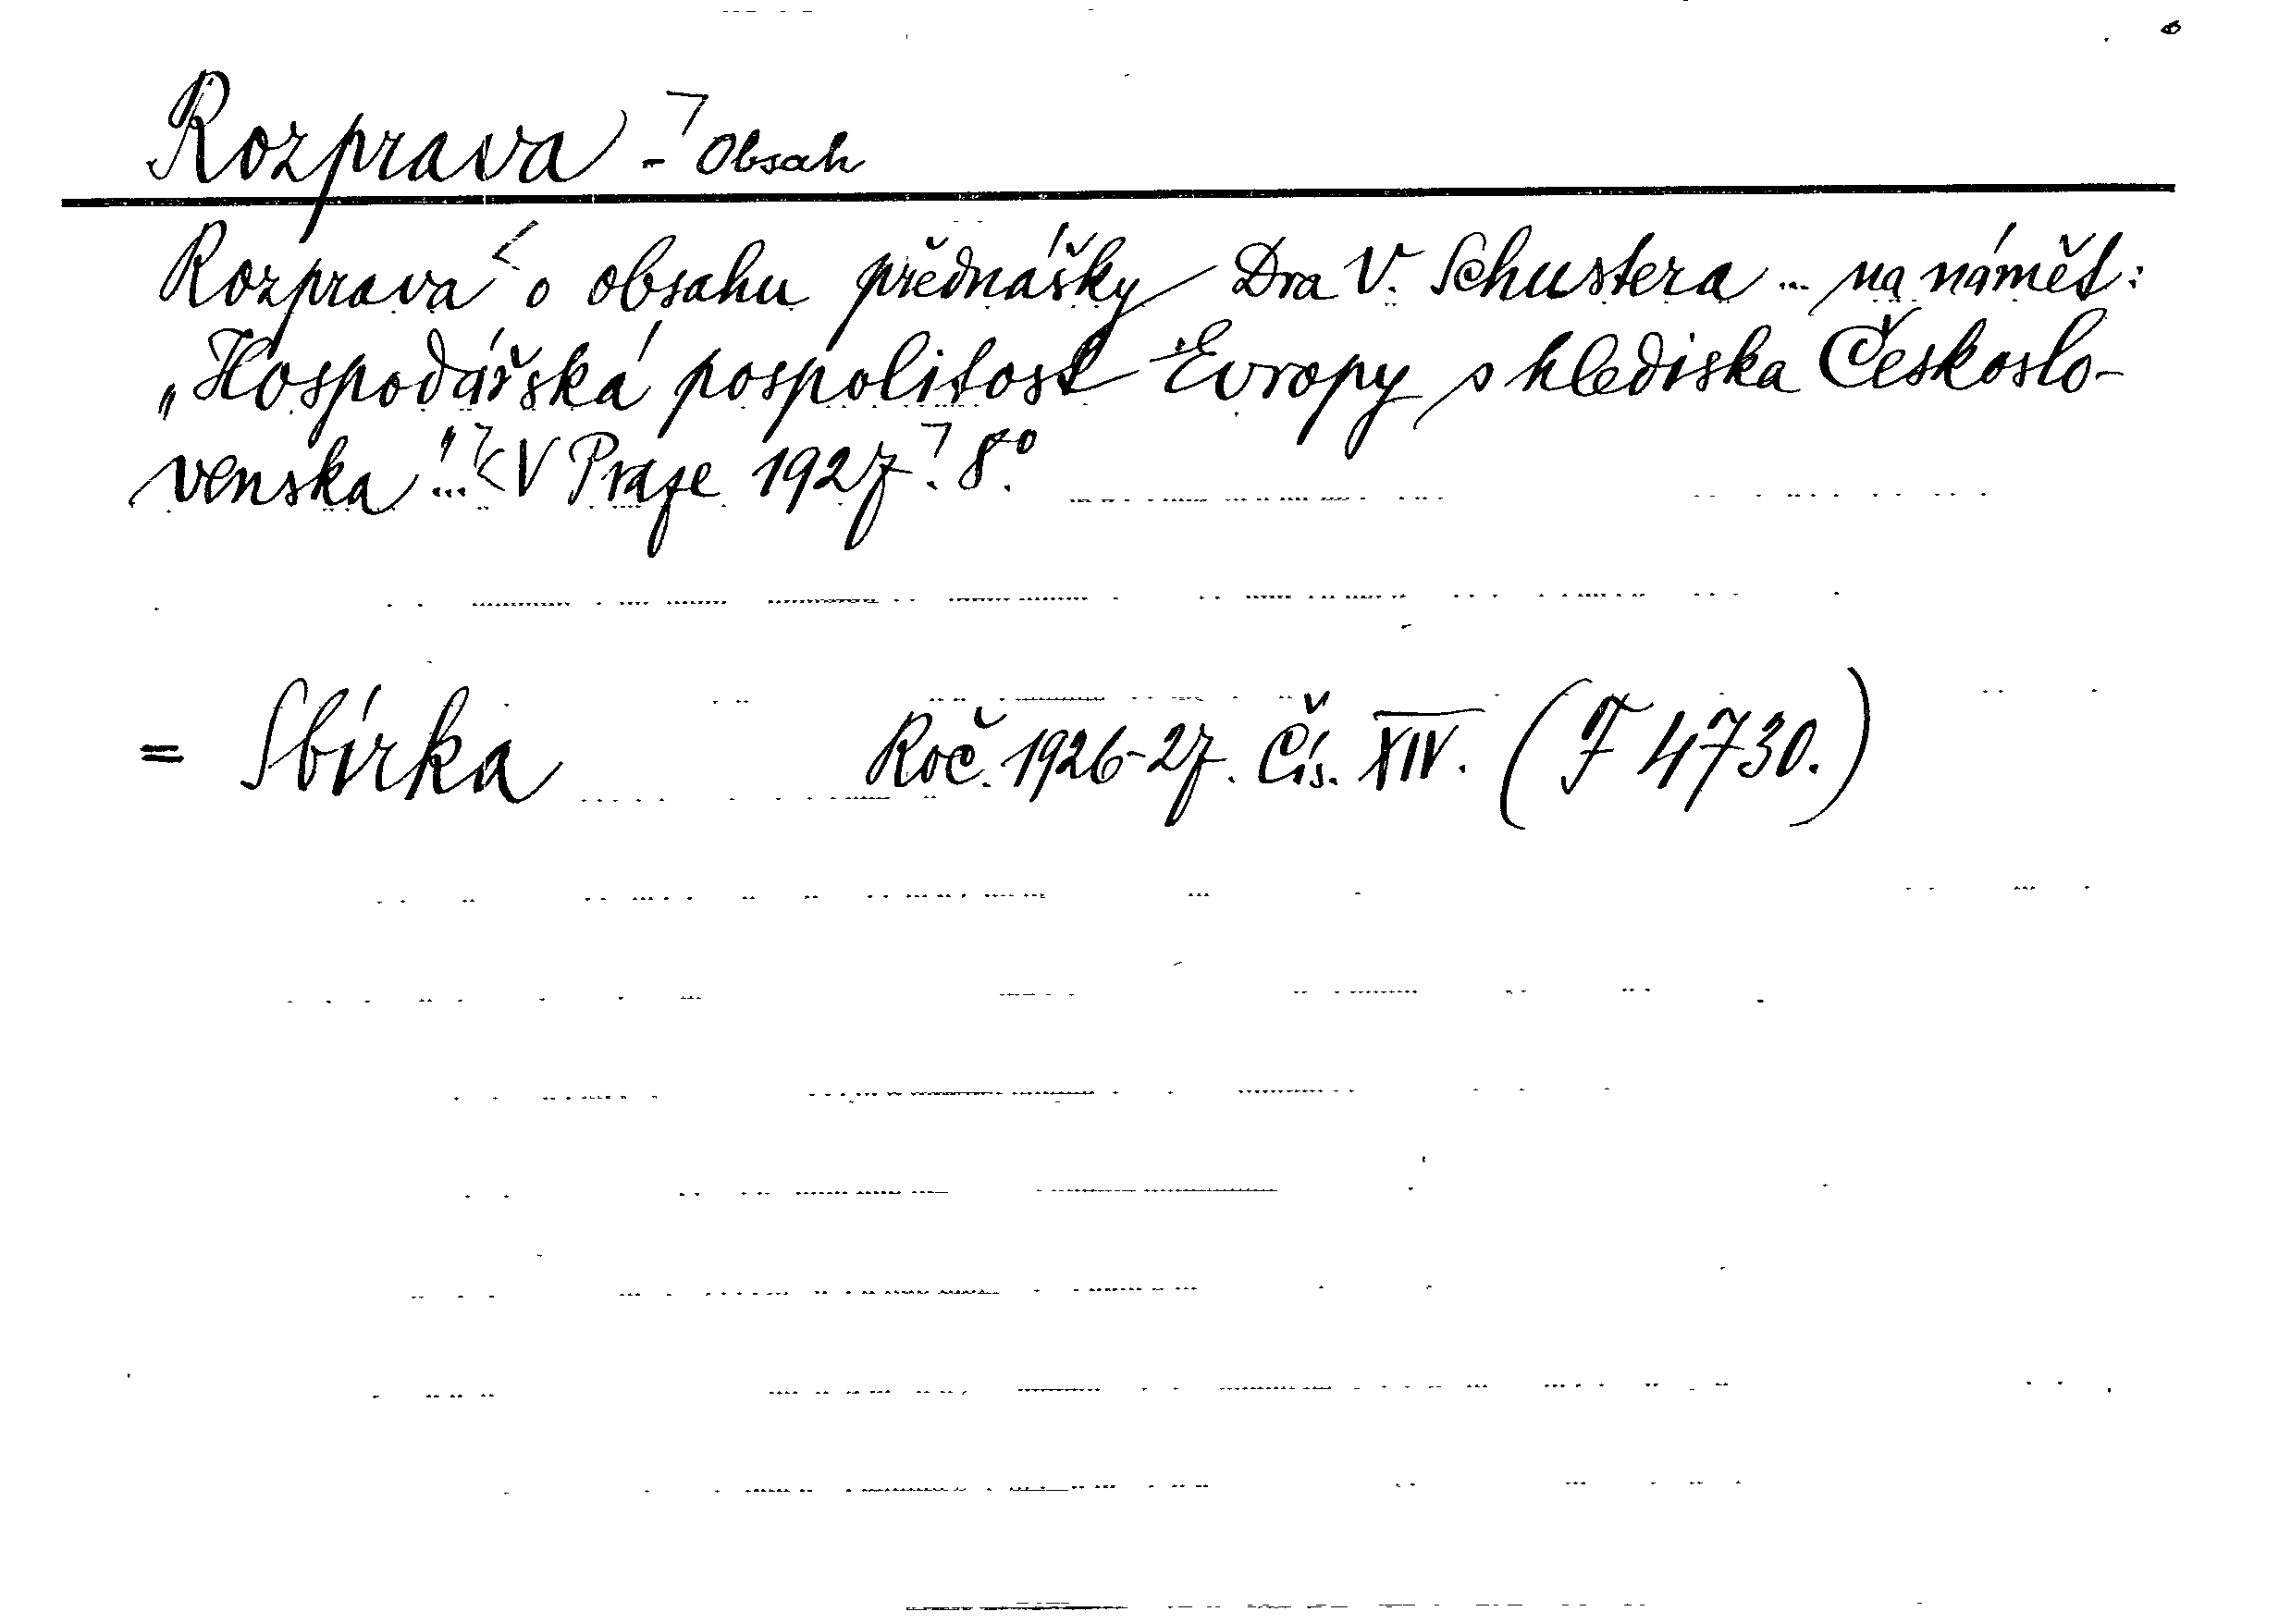 Rozprava - Obsah
Rozprava o obsahu přednášky Dra V. Schustera ... na námět:
„Hospodářská pospolitost Evropy s hlediska Českoslo-
venska" ... V Praze 1927. 8°.
= Sbírka Roč. 1926-27. Čís. XIV. (F 4730.)